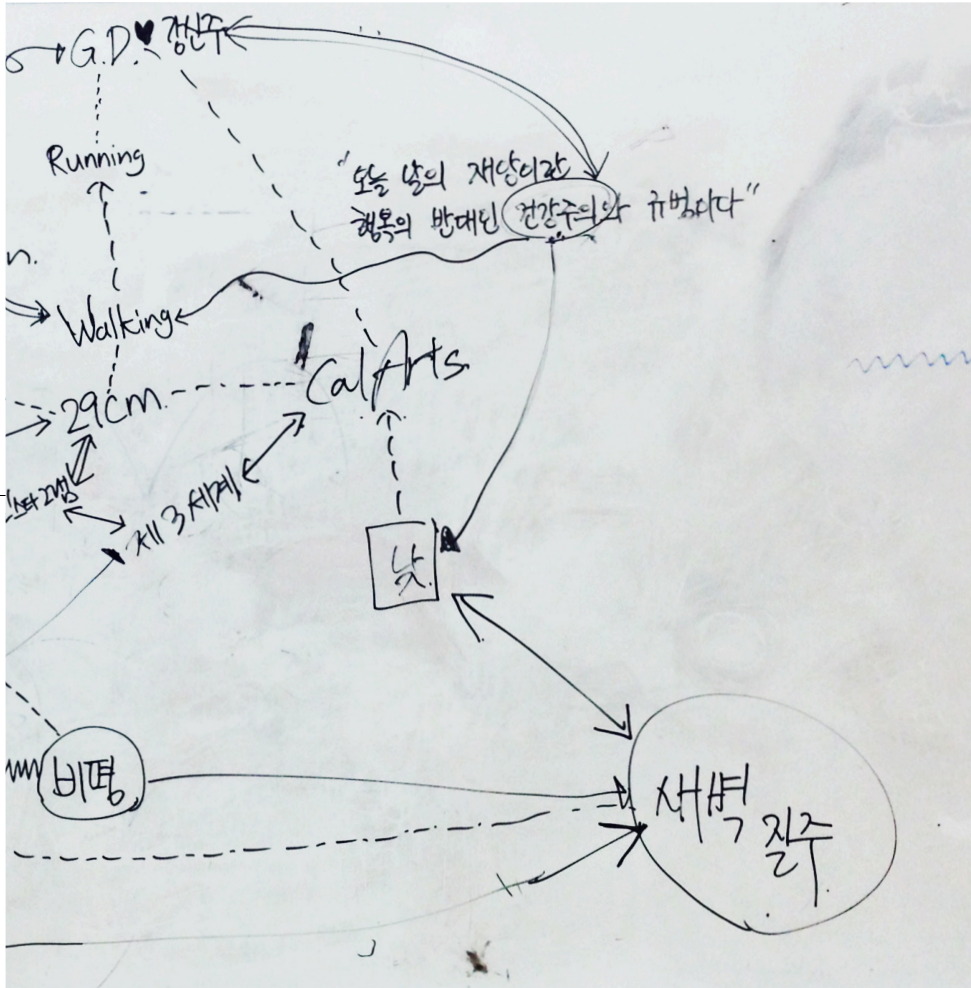 G.D.♥ 강신주
Running
"오늘 날의 재앙이란
행복의 반대인 건강주의와 규범이다"
n.
Walking
CalArts
29cm.
스타그램
제3세계
낮
비평
새벽
질주